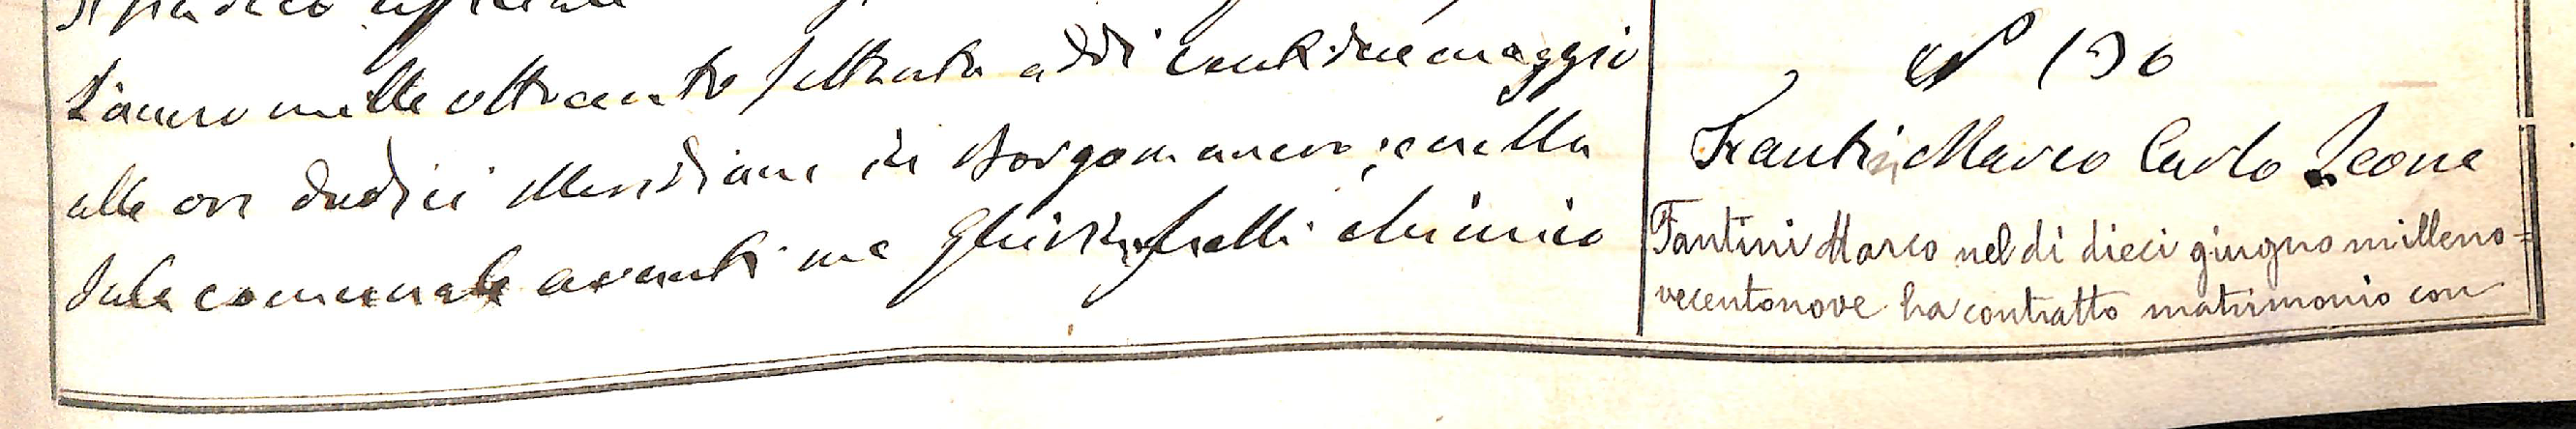 Il sindaco
L'anno mille ottocento settanta addì ventidue maggio
alle ore dodici meridiane in Borgomanero, e nella
Sala comunale avanti me Ghiringhelli
N° 136
Fantini Marco Carlo Leone
Fantini Marco nel dì dieci giugno milleno=
vecentonove ha contratto matrimonio con